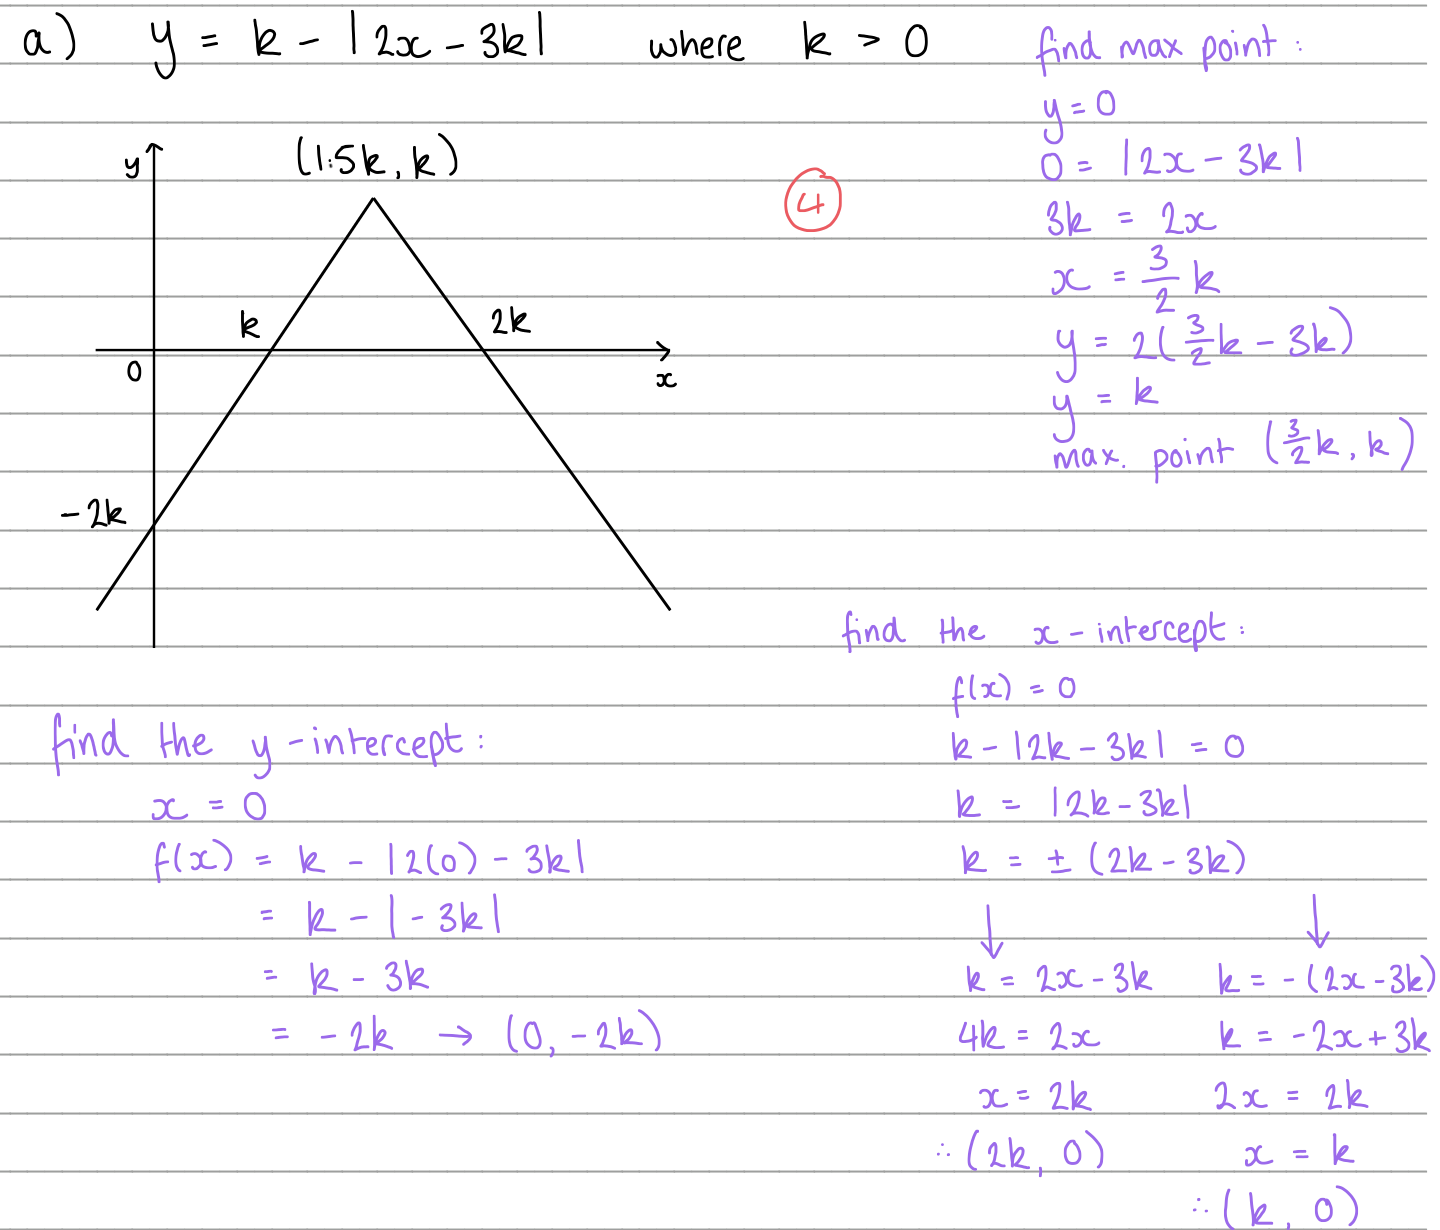 a) y = k - |2x - 3k| where k > 0
find max point :
y = 0
0 = |2x - 3k|
3k = 2x
x = 3/2 k
y = 2(3/2 k - 3k)
y = k
max. point (3/2 k, k)
(1.5k, k)
4
y
k
2k
0
x
-2k
find the y-intercept :
x = 0
f(x) = k - |2(0) - 3k|
= k - |-3k|
= k - 3k
= -2k → (0, -2k)
find the x-intercept :
f(x) = 0
k - |2k - 3k| = 0
k = |2k - 3k|
k = ± (2k - 3k)
k = 2x - 3k
4k = 2x
x = 2k
∴ (2k, 0)
k = -(2x - 3k)
k = -2x + 3k
2x = 2k
x = k
∴ (k, 0)